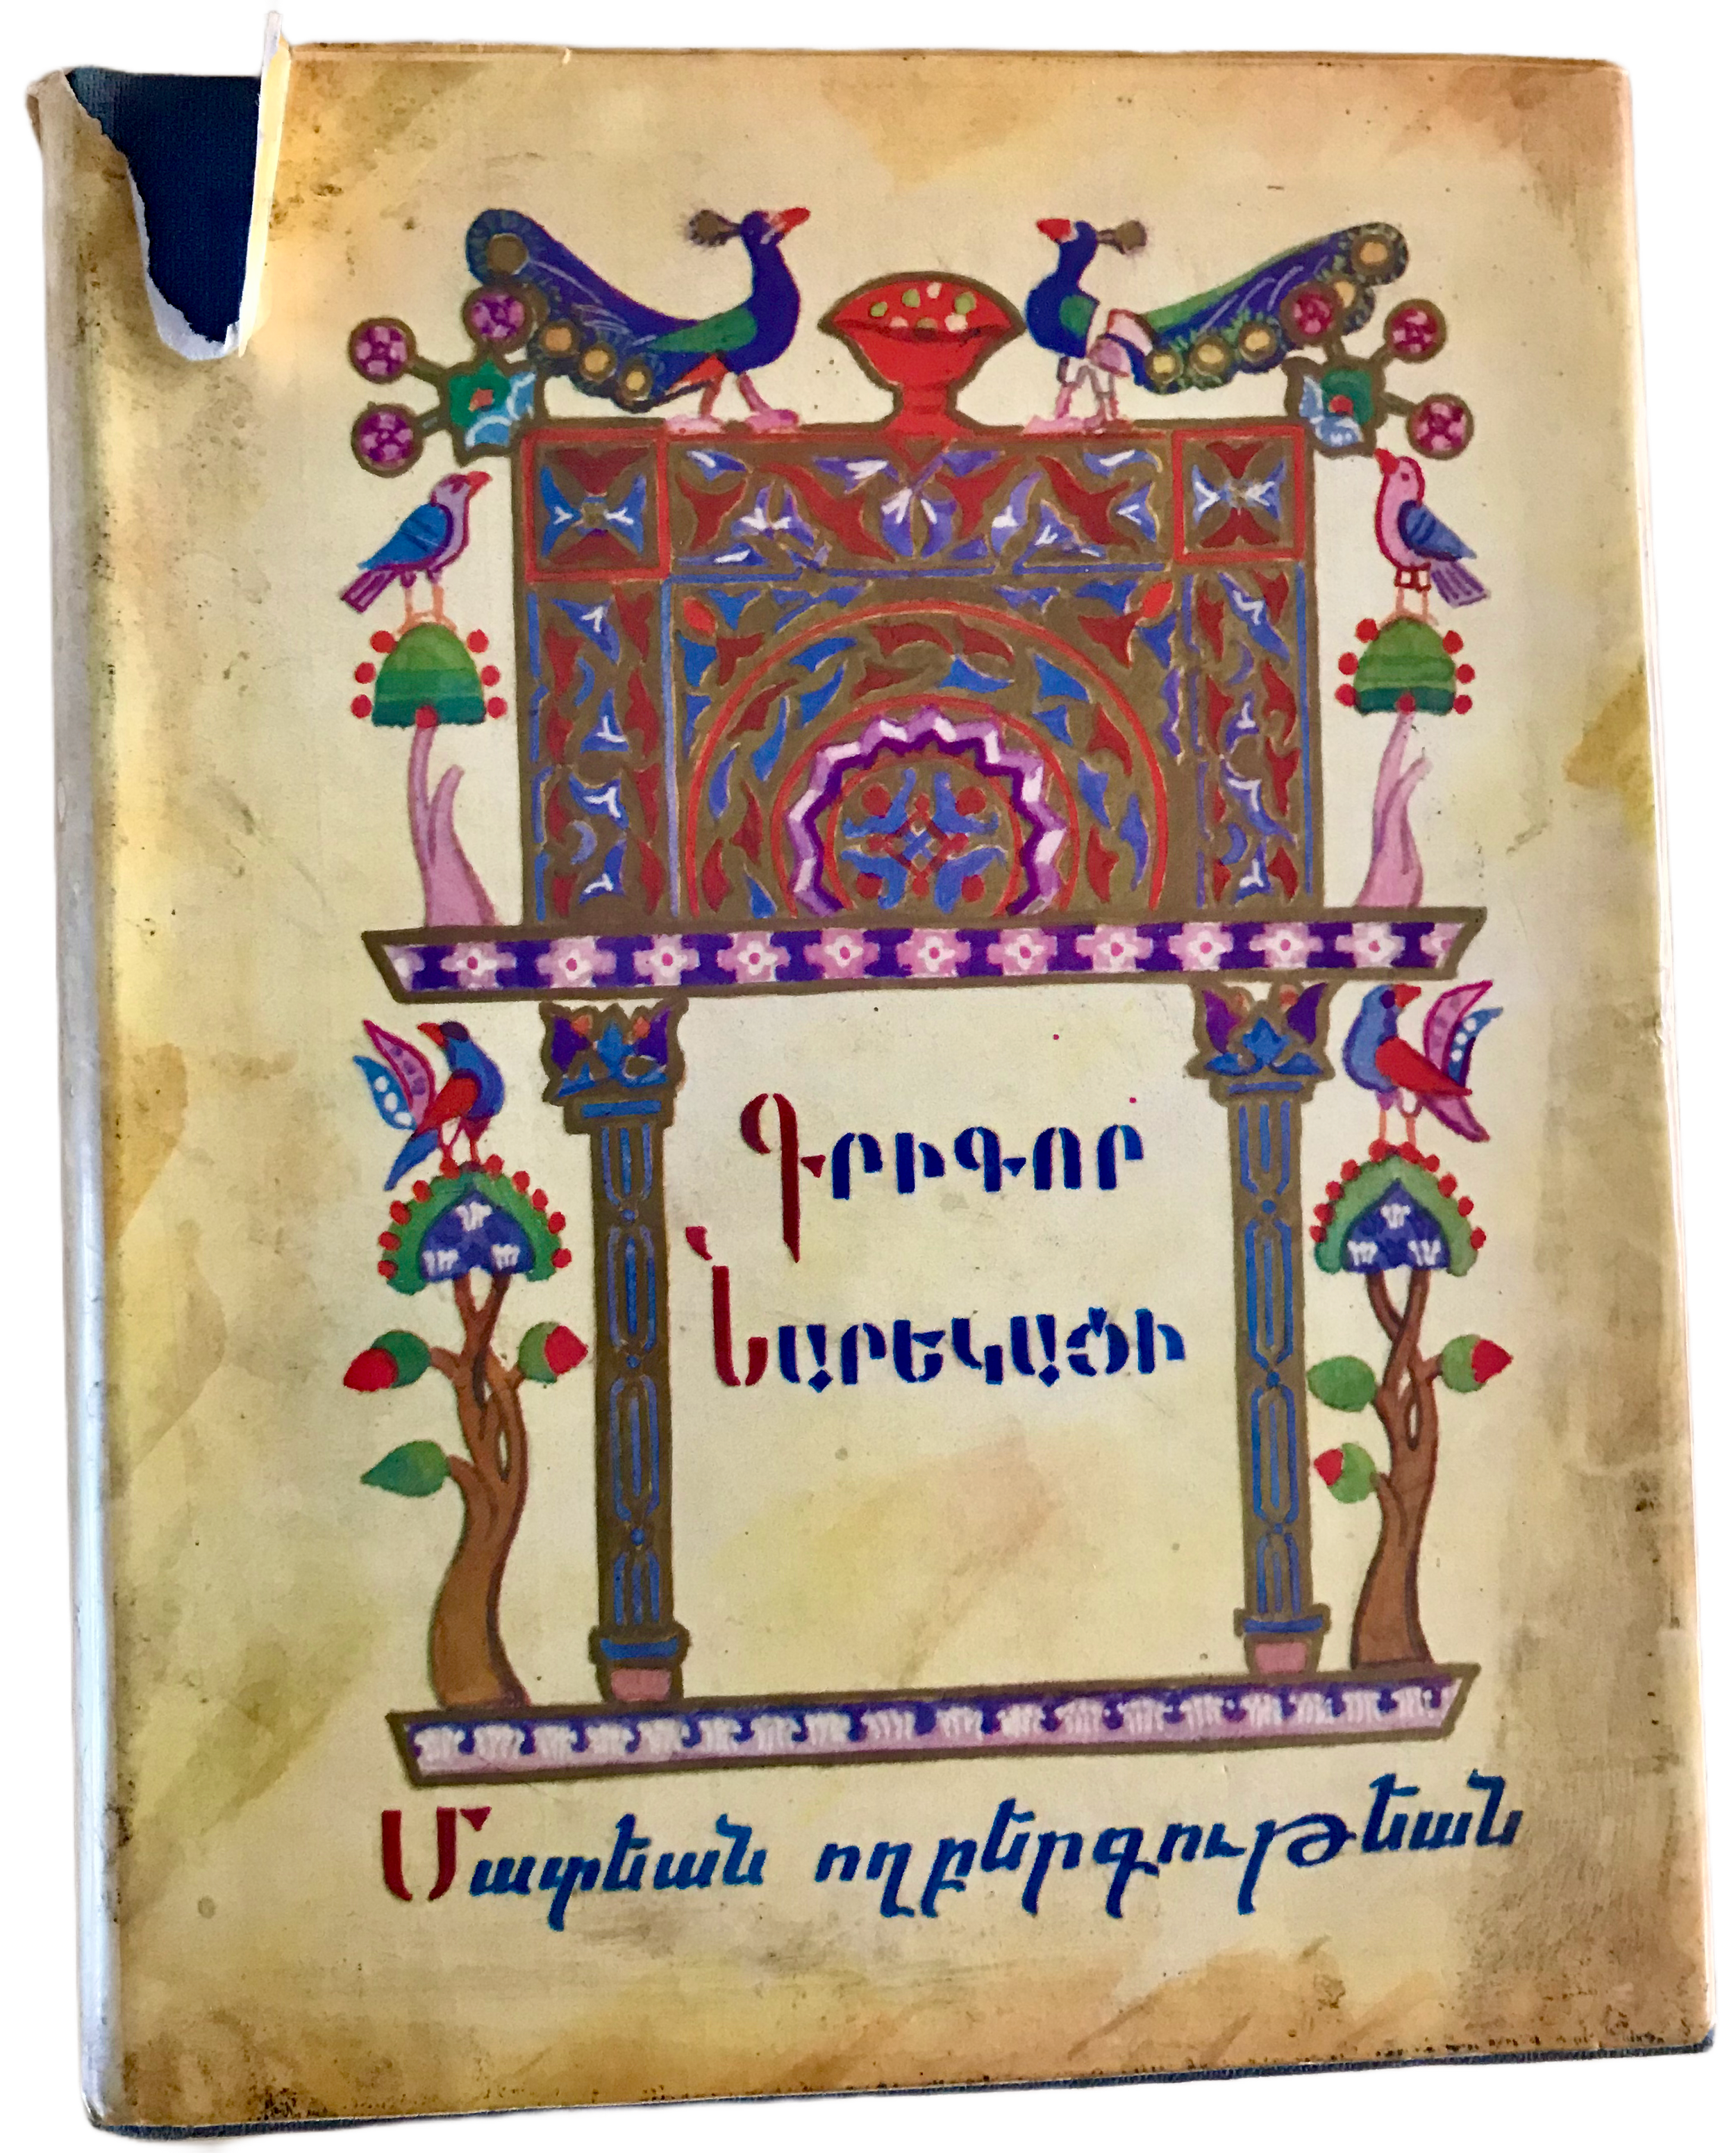 Գրիգոր
Նարեկացի
Մատեան ողբերգութեան